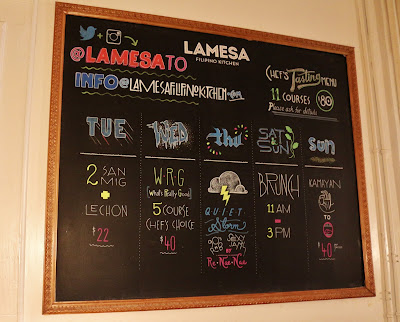 +
@LAMESATO
INFO@LAMESAFILIPINOKITCHEN
LAMESA
FILIPINO KITCHEN
CHEF'S Tasting MENU
11 COURSES $80
Please ask for details
TUE
2 SAN MIG
+
LECHON
$22
WED
W·R·G
(What's Really Good)
5 COURSE
CHEF'S CHOICE
$40
thu
QUIET
Storm
BY
Re-Nae-Nae
SAT & SUN
BRUNCH
11 AM
3 PM
SUN
KAMAYAN
TO
$40